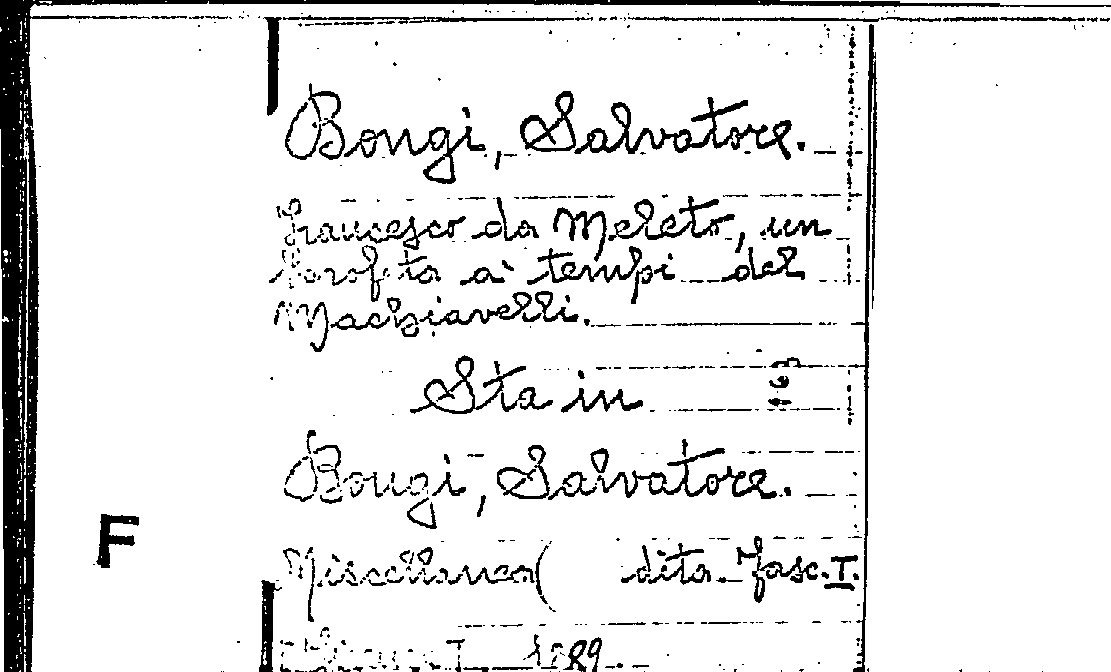 Bongi, Salvatore.
Francesco da Meleto, un
profeta a' tempi del
Machiavelli.
Sta in
163
Bongi, Salvatore.
F
Miscellanea( dita. Fasc. I.
1889.